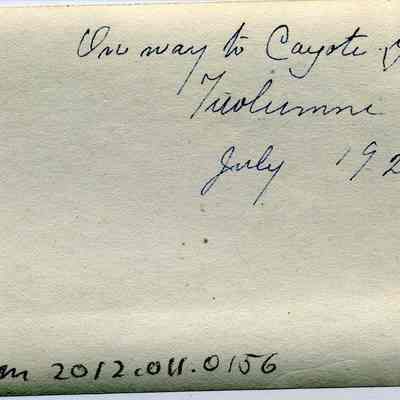 On way to Cayote
Tuolumne
July 192
m 2012.011.0156